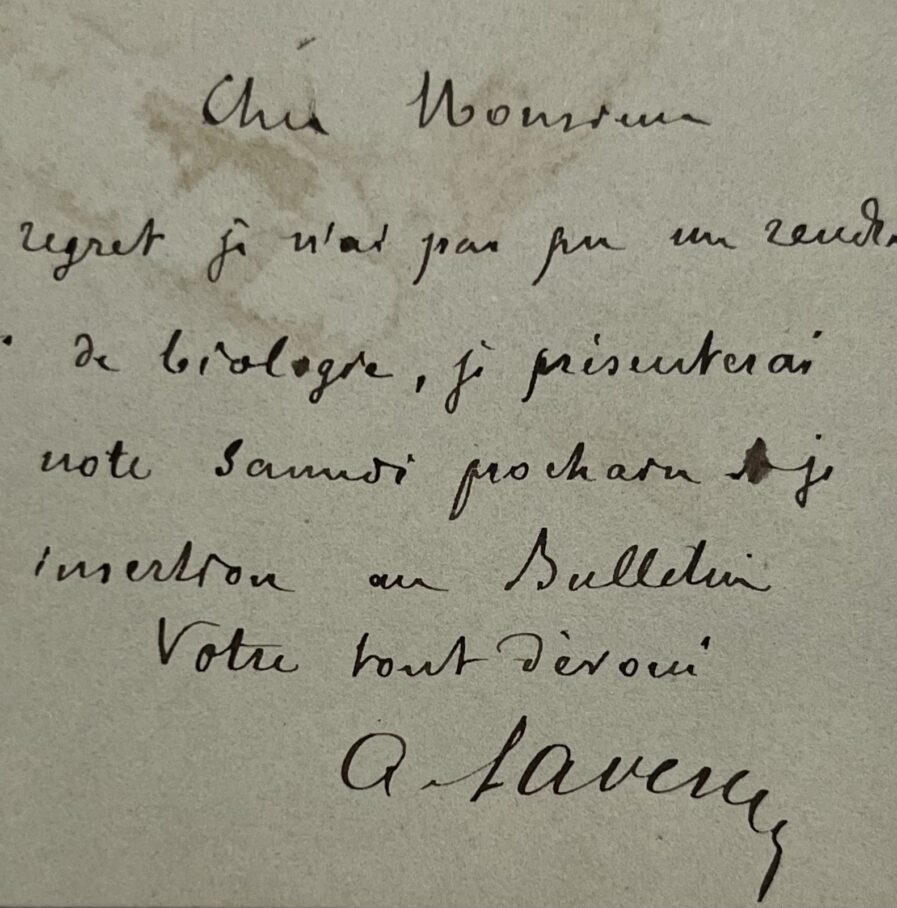 Cher Monsieur
regret je n'ai pas pu me rendre
de biologie, je présenterai
note samedi prochain je
insertion au Bulletin
Votre tout dévoué
A. Laveran